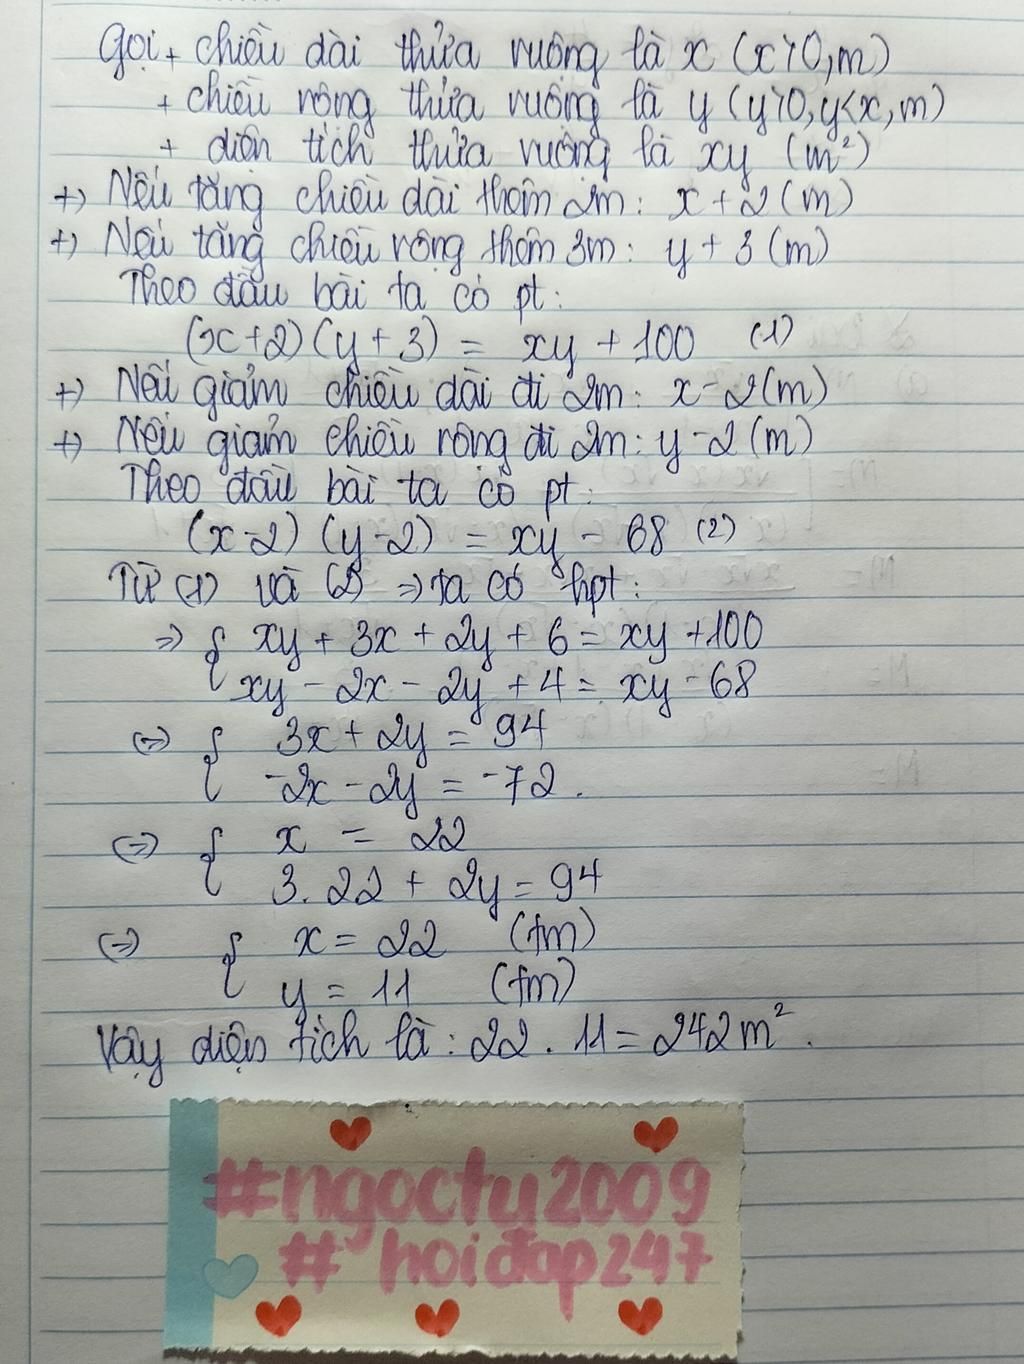 Gọi + chiều dài thửa ruộng là x (x>0, m)
+ chiều rộng thửa ruộng là y (y>0, y<x, m)
+ diện tích thửa ruộng là xy (m²)
+) Nếu tăng chiều dài thêm 2m: x + 2 (m)
+) Nếu tăng chiều rộng thêm 3m: y + 3 (m)
Theo đầu bài ta có pt:
(x+2) (y+3) = xy + 100 (1)
+) Nếu giảm chiều dài đi 2m: x - 2 (m)
+) Nếu giảm chiều rộng đi 2m: y - 2 (m)
Theo đầu bài ta có pt:
(x-2) (y-2) = xy - 68 (2)
Từ (1) và (2) => ta có hpt:
=> { xy + 3x + 2y + 6 = xy + 100
xy - 2x - 2y + 4 = xy - 68
(=) { 3x + 2y = 94
-2x - 2y = -72.
(=) { x = 22
3.22 + 2y = 94
(=) { x = 22 (tm)
y = 11 (tm)
Vậy diện tích là: 22 . 11 = 242 m².
#ngocty2009
# hoiđap247